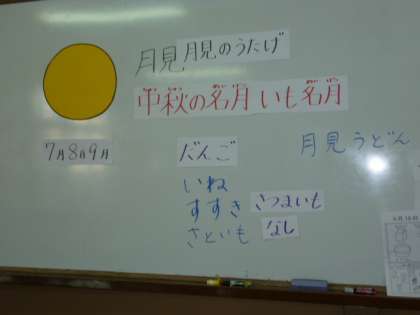 月見 月見のうたげ
中秋の名月 いも名月
7月8月9月
だんご
月見うどん
いね
すすき さつまいも
さといも なし